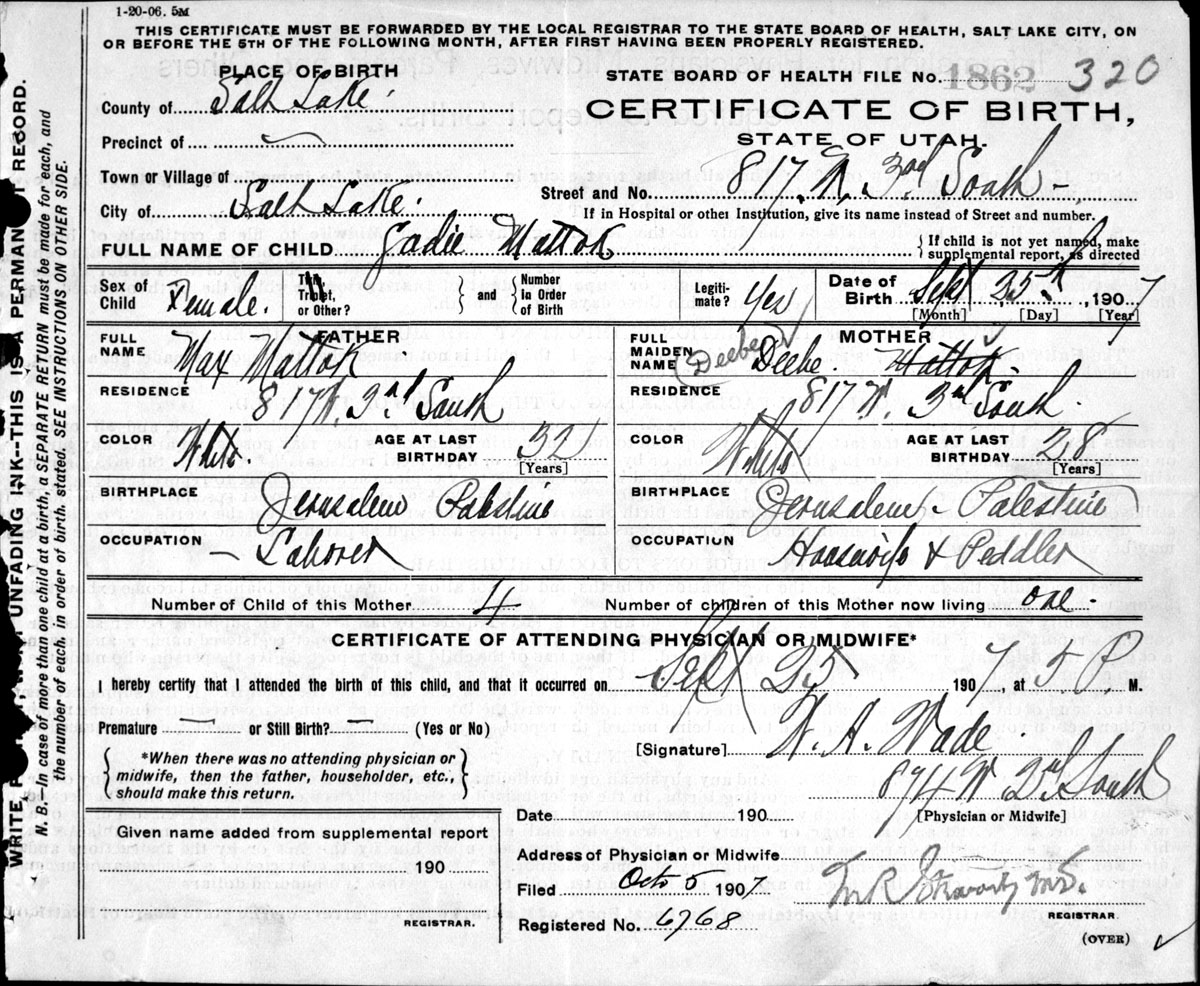 1-20-06. 5M
THIS CERTIFICATE MUST BE FORWARDED BY THE LOCAL REGISTRAR TO THE STATE BOARD OF HEALTH, SALT LAKE CITY, ON
OR BEFORE THE 5TH OF THE FOLLOWING MONTH, AFTER FIRST HAVING BEEN PROPERLY REGISTERED.
PLACE OF BIRTH
STATE BOARD OF HEALTH FILE No. 1862 320
County of Salt Lake.
CERTIFICATE OF BIRTH,
STATE OF UTAH.
Precinct of —
Town or Village of
Street and No. 817. W. 3rd South —
City of Salt Lake.
If in Hospital or other Institution, give its name instead of Street and number.
FULL NAME OF CHILD Sadie Mattok
{ If child is not yet named, make
supplemental report, as directed
Sex of Child Female.
Twin, Triplet, or Other? } and { Number in Order of Birth
Legiti-mate? Yes
Date of Birth Sept 25th, 1907
[Month] [Day] [Year]
FATHER
FULL NAME Max Mattok
RESIDENCE 817 W. 3rd South
COLOR White.
AGE AT LAST BIRTHDAY 32
[Years]
BIRTHPLACE Jerusalem Palestine
OCCUPATION — Laborer
MOTHER
FULL MAIDEN NAME (Deebe) Deebe. Mattok
RESIDENCE 817 W. 3rd South
COLOR White
AGE AT LAST BIRTHDAY 28
[Years]
BIRTHPLACE Jerusalem - Palestine
OCCUPATION Housewife & Peddler
Number of Child of this Mother 4
Number of children of this Mother now living one -
CERTIFICATE OF ATTENDING PHYSICIAN OR MIDWIFE*
I hereby certify that I attended the birth of this child, and that it occurred on Sept 25 1907, at 5 P M.
Premature — or Still Birth? — (Yes or No)
{ *When there was no attending physician or
midwife, then the father, householder, etc.,
should make this return. }
[Signature] W. A. Wade.
894 W 2nd South
Date 190
[Physician or Midwife]
Given name added from supplemental report
190
REGISTRAR.
Address of Physician or Midwife
Filed Oct 5 1907
REGISTRAR.
Registered No. 6768
(OVER)
WRITE WITH UNFADING INK--THIS IS A PERMANENT RECORD.
N. B.--In case of more than one child at a birth, a SEPARATE RETURN must be made for each, and
the number of each, in order of birth, stated. SEE INSTRUCTIONS ON OTHER SIDE.